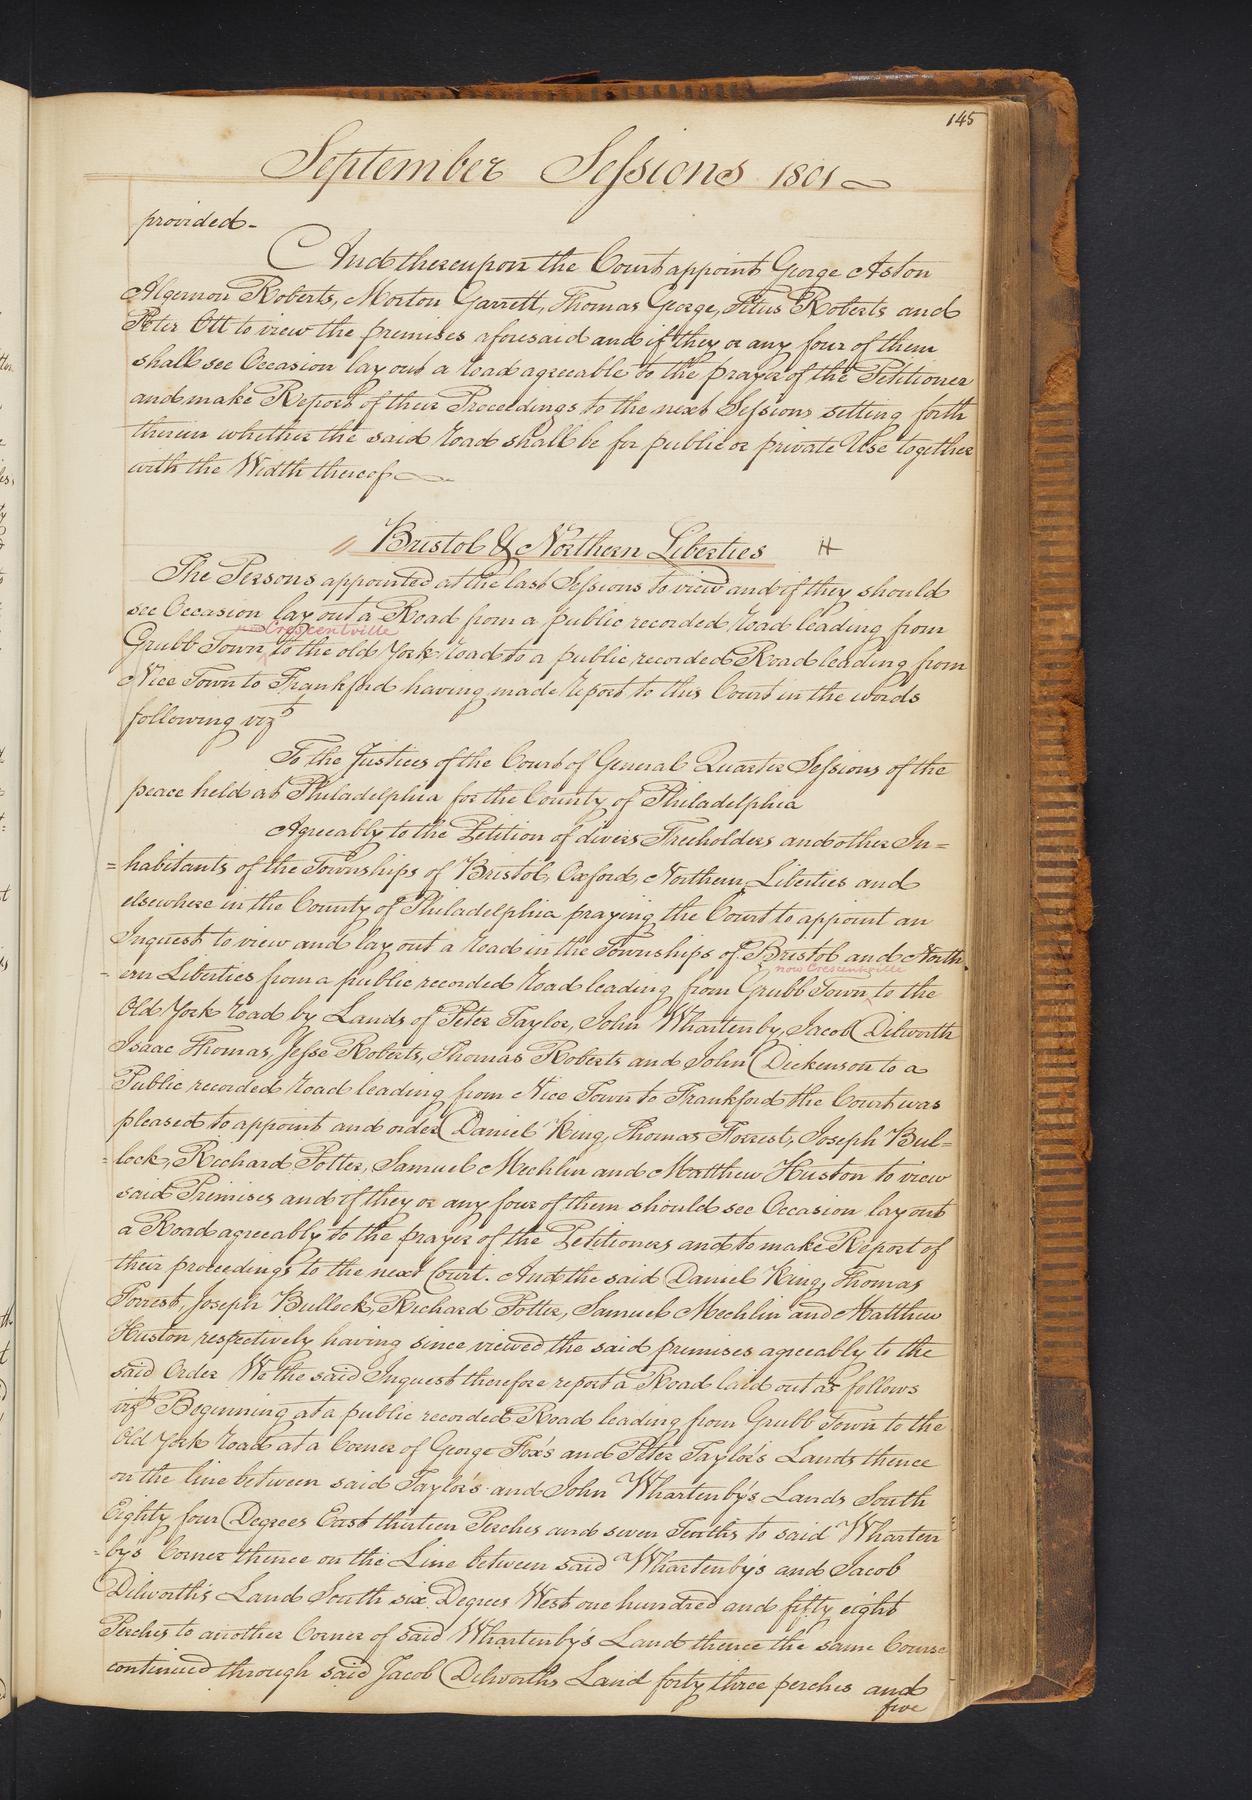 145
September Sessions 1801
provided-
And thereupon the Court appoint George Aston
Algernon Roberts, Morton Garrett, Thomas George, Titus Roberts and
Peter Ott to view the premises aforesaid and if they or any four of them
shall see Occasion lay out a road agreeable to the prayer of the Petitioner
and make Report of their Proceedings to the next Sessions setting forth
therein whether the said road shall be for public or private Use together
with the Width thereof
Bristol & Northern Liberties
The Persons appointed at the last Sessions to view and if they should
see Occasion lay out a Road from a public recorded road leading from
now Crescentville
Grubb Town to the old York road to a public recorded Road leading from
Nice Town to Frankford having made report to this Court in the words
following vizt
To the Justices of the Court of General Quarter Sessions of the
peace held at Philadelphia for the County of Philadelphia
Agreeably to the Petition of divers Freeholders and other In=
=habitants of the Townships of Bristol, Oxford, Northern Liberties and
elsewhere in the County of Philadelphia praying the Court to appoint an
Inquest to view and lay out a road in the Townships of Bristol and North
now Crescentville
=ern Liberties from a public recorded road leading from Grubb Town to the
Old York road by Lands of Peter Taylor, John Whartenby, Jacob Dilworth
Isaac Thomas, Jesse Roberts, Thomas Roberts and John Dickenson to a
Public recorded road leading from Nice Town to Frankford the Court was
pleased to appoint and order Daniel King, Thomas Forrest, Joseph Bul=
=lock, Richard Potter, Samuel Mechlin and Matthew Huston to view
said Premises and if they or any four of them should see Occasion lay out
a Road agreeably to the prayer of the Petitioners and to make Report of
their proceedings to the next Court. And the said Daniel King, Thomas
Forrest, Joseph Bullock, Richard Potter, Samuel Mechlin and Matthew
Huston respectively having since viewed the said premises agreeably to the
said Order We the said Inquest therefore report a Road laid out as follows
vizt Beginning at a public recorded Road leading from Grubb Town to the
Old York road at a Corner of George Fox's and Peter Taylor's Lands thence
on the line between said Taylor's and John Whartenby's Lands South
Eighty four Degrees East thirteen Perches and seven Tenths to said Wharten
=by's Corner thence on the Line between said Whartenby's and Jacob
Dilworth's Land South six Degrees West one hundred and fifty eight
Perches to another Corner of said Whartenby's Land thence the same Course
continued through said Jacob Dilworths Land forty three perches and
five